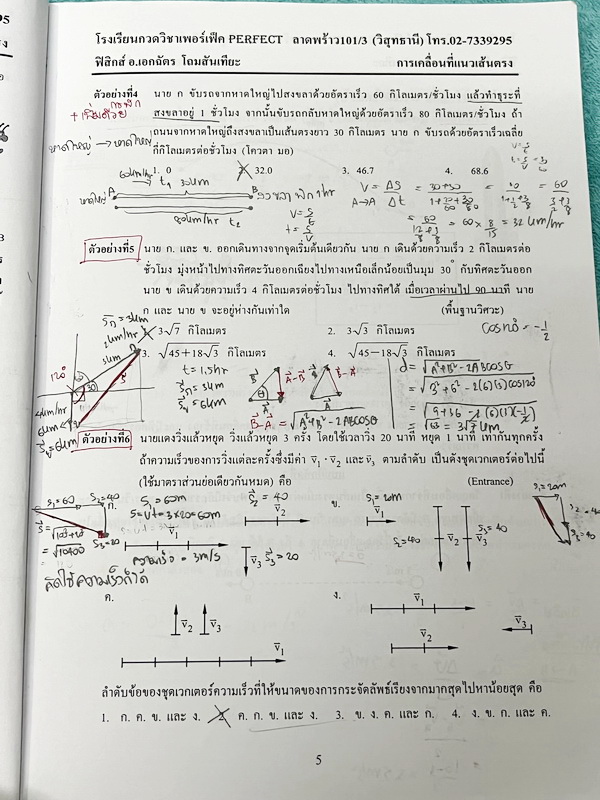 โรงเรียนกวดวิชาเพอร์เฟ็ค PERFECT ลาดพร้าว101/3 (วิสุทธานี) โทร.02-7339295
ฟิสิกส์ อ.เอกฉัตร โถมสันเทียะ การเคลื่อนที่แนวเส้นตรง
ตัวอย่างที่4 นาย ก ขับรถจากหาดใหญ่ไปสงขลาด้วยอัตราเร็ว 60 กิโลเมตร/ชั่วโมง แล้วทำธุระที่
สงขลาอยู่ 1 ชั่วโมง จากนั้นขับรถกลับหาดใหญ่ด้วยอัตราเร็ว 80 กิโลเมตร/ชั่วโมง ถ้า
ถนนจากหาดใหญ่ถึงสงขลาเป็นเส้นตรงยาว 30 กิโลเมตร นาย ก ขับรถด้วยอัตราเร็วเฉลี่ย
หาดใหญ่ → หาดใหญ่
กี่กิโลเมตรต่อชั่วโมง (โควตา มอ)
1. 0 2. 32.0 3. 46.7 4. 68.6
60km/hr t₁ 30km
หาดใหญ่ A B สงขลา พัก 1 hr
80km/hr t₂
= 60 × 8/15 = 32 km/hr
ตัวอย่างที่5 นาย ก. และ ข. ออกเดินทางจากจุดเริ่มต้นเดียวกัน นาย ก เดินด้วยความเร็ว 2 กิโลเมตรต่อ
ชั่วโมง มุ่งหน้าไปทางทิศตะวันออกเฉียงไปทางเหนือเล็กน้อยเป็นมุม 30° กับทิศตะวันออก
นาย ข เดินด้วยความเร็ว 4 กิโลเมตรต่อชั่วโมง ไปทางทิศใต้ เมื่อเวลาผ่านไป 90 นาที นาย
ก และ นาย ข จะอยู่ห่างกันเท่าใด (พื้นฐานวิศวะ)
cos120° = -1/2
1. 3√7 กิโลเมตร 2. 3√3 กิโลเมตร
3. √45+18√3 กิโลเมตร 4. √45−18√3 กิโลเมตร
t = 1.5hr
d = √A²+B²-2ABcosθ
ตัวอย่างที่6 นายแดงวิ่งแล้วหยุด วิ่งแล้วหยุด 3 ครั้ง โดยใช้เวลาวิ่ง 20 นาที หยุด 1 นาที เท่ากันทุกครั้ง
ถ้าความเร็วของการวิ่งแต่ละครั้งซึ่งมีค่า v̄₁ , v̄₂ และ v̄₃ ตามลำดับ เป็นดังชุดเวกเตอร์ต่อไปนี้
(ใช้มาตราส่วนย่อเดียวกันหมด) คือ (Entrance)
S₁=60 S₂=40 ก. S₁ = 60m S₂ = 40 ข. S₁=20m
S=vt = 3×20=60m
v̄₁ v̄₂ v̄₁
S₂=40 v̄₂ v̄₃ S₃=40
ความเร็ว = 3m/s v̄₃ S₃=20
= √10400
คิดใช้ความเร็วก็ได้
ค. ง.
v̄₂ v̄₃ v̄₁
v̄₁ v̄₂ v̄₃
ลำดับข้อของชุดเวกเตอร์ความเร็วที่ให้ขนาดของการกระจัดลัพธ์เรียงจากมากสุดไปหาน้อยสุด คือ
1. ก. ค. ข. และ ง. 2. ค. ก. ข. และ ง. 3. ข. ง. ค. และ ก. 4. ง. ข. ก. และ ค.
5